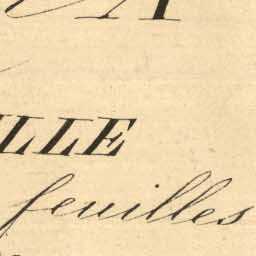 A
LLE
feuilles